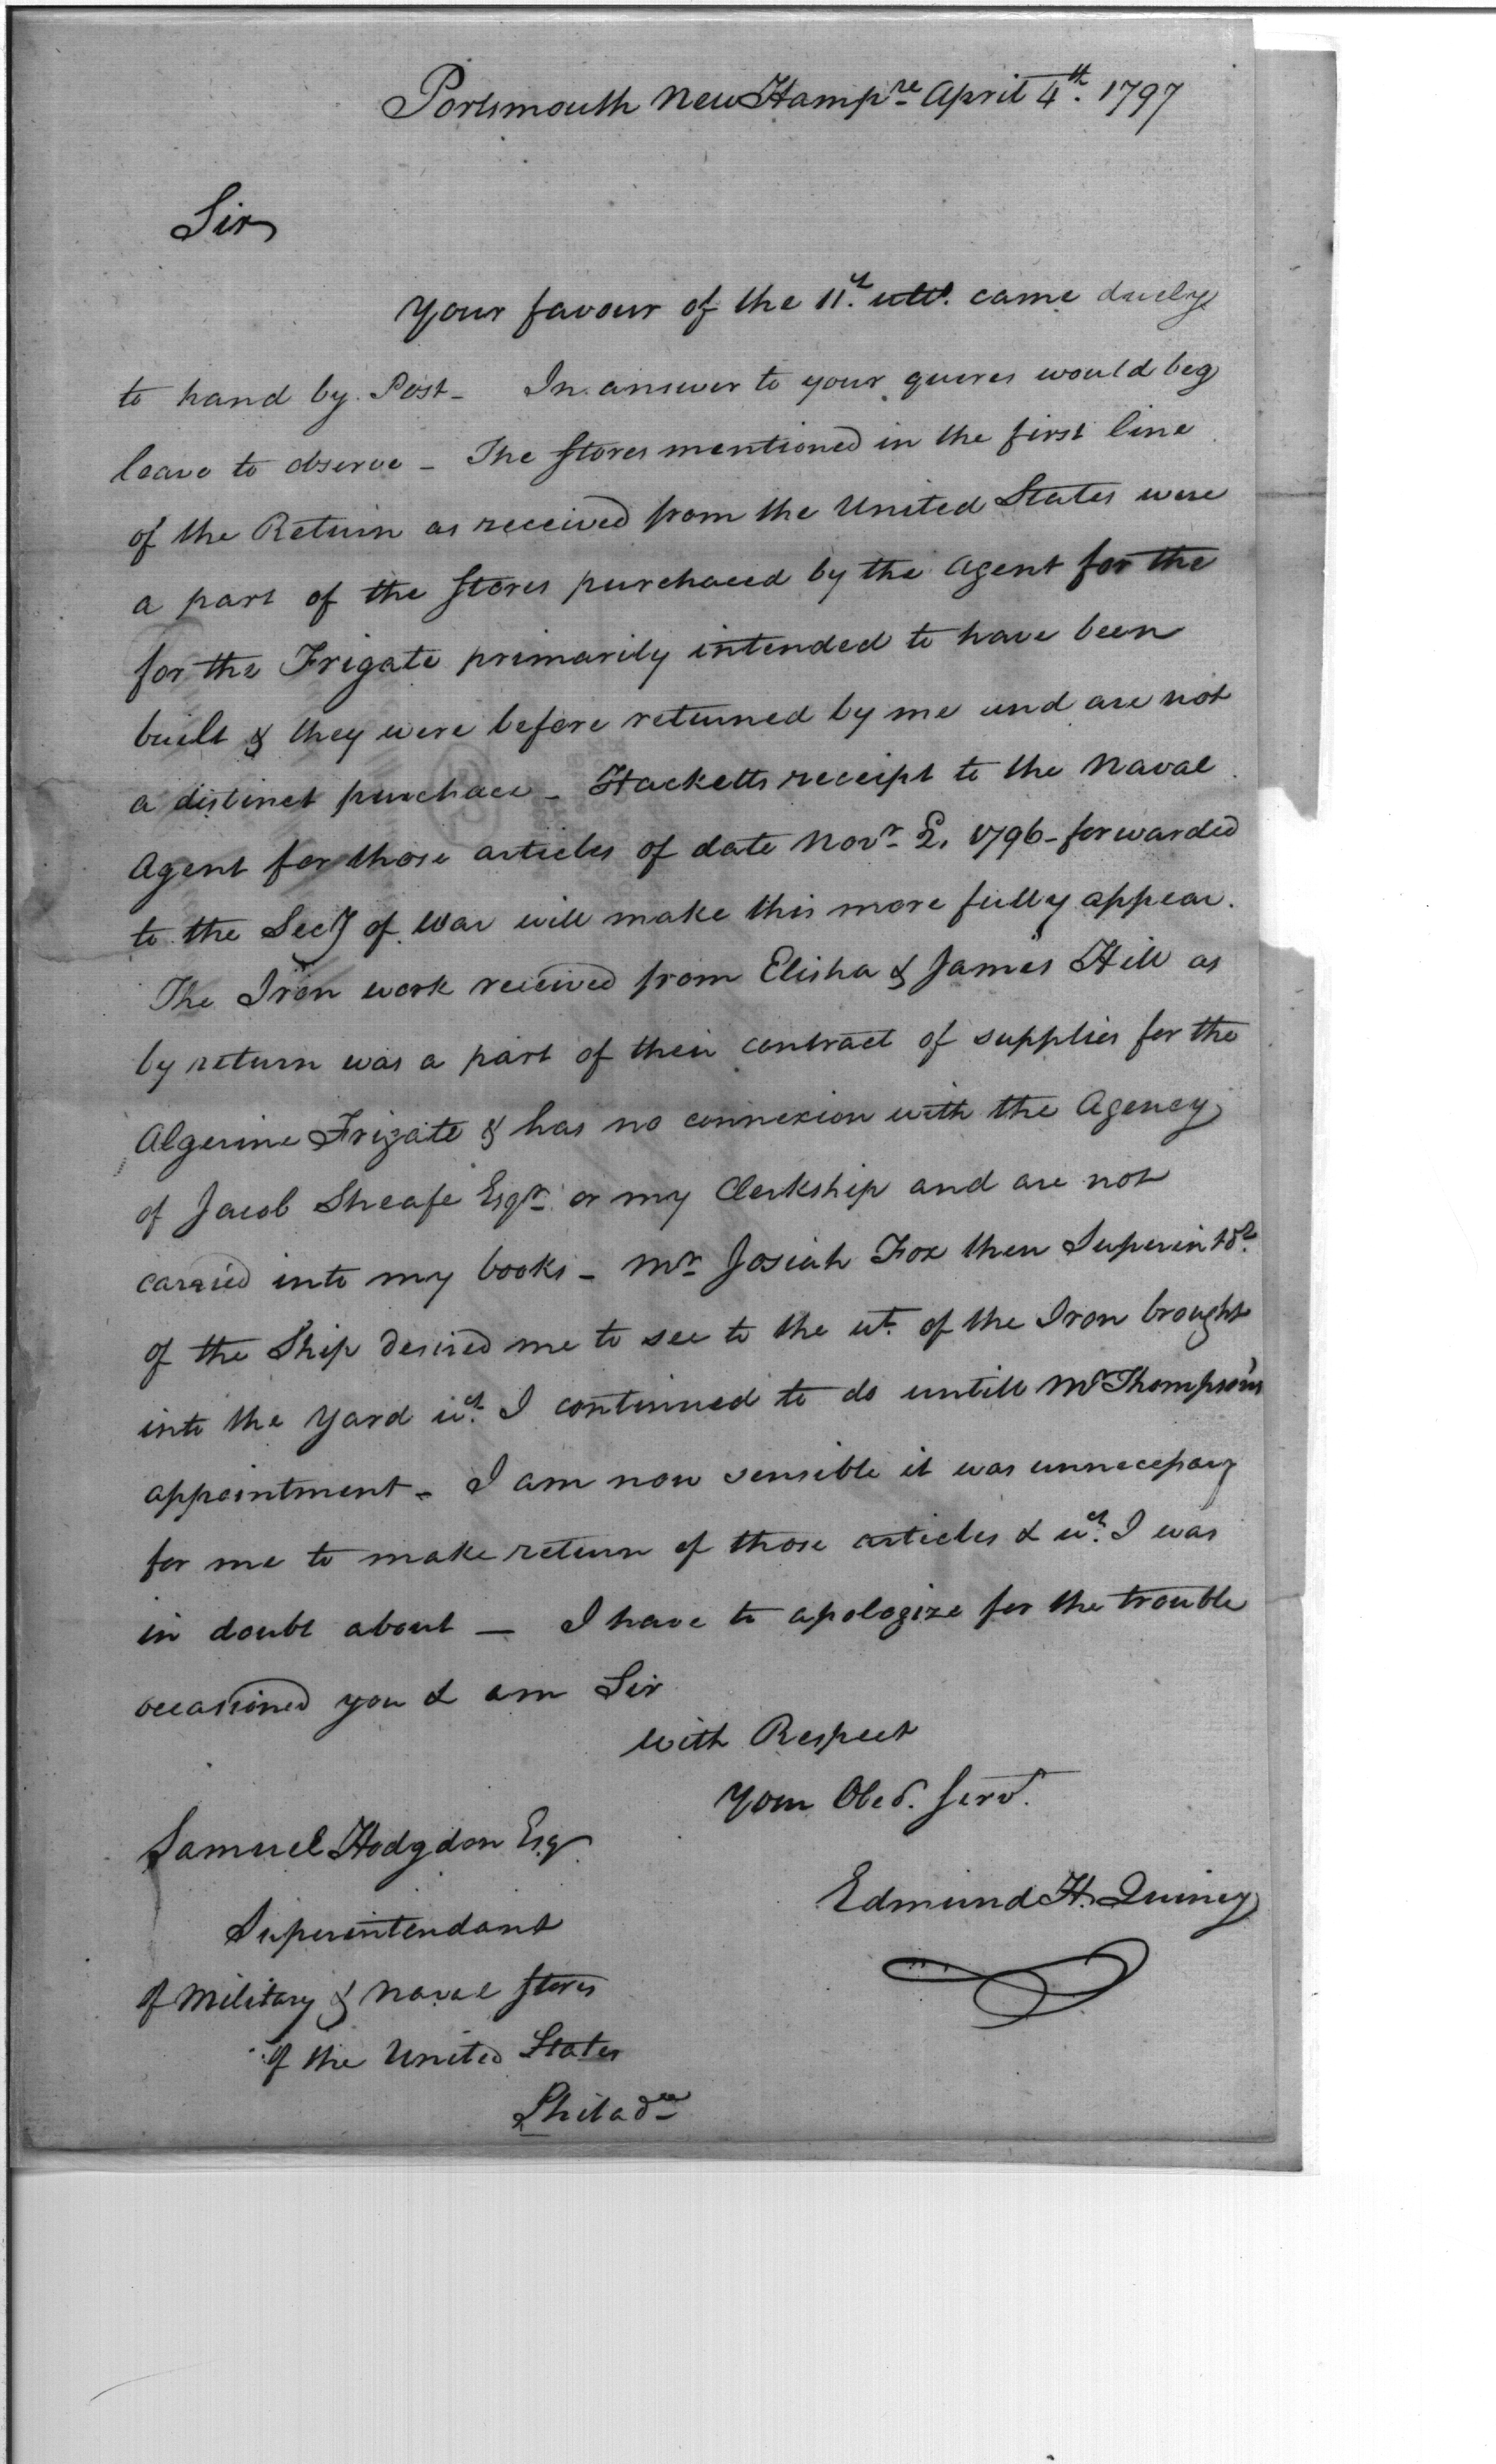 Portsmouth New Hampre April 4th. 1797
Sir
Your favour of the 11th. ulto. came duely
to hand by Post - In answer to your queres would beg
leave to observe - The Stores mentioned in the first line
of the Return as received from the United States were
a part of the Stores purchaced by the Agent for the
for the Frigate primarily intended to have been
built & they were before returned by me and are not
a distinct purchace - Hacketts receipt to the Naval
Agent for those articles of date Novr. 2. 1796 - forwarded
to the Secy of War will make this more fully appear.
The Iron work received from Elisha & James Hill as
by return was a part of their contract of supplies for the
Algerine Frigate & has no connexion with the Agency
of Jacob Sheafe Esqr. or my Clerkship and are not
carried into my books - Mr Josiah Fox then Superintdt.
of the Ship desired me to see to the wt. of the Iron brought
into the Yard wch. I continued to do untill Mr Thompson's
appointment - I am now sensible it was unnecessary
for me to make return of those articles & wch. I was
in doubt about — I have to apologize for the trouble
occasioned you & am Sir
with Respect
Your Obed. Servt.
Edmund H. Quincy
Samuel Hodgdon Esq
Superintendant
of Military & Naval Stores
of the United States
Philada